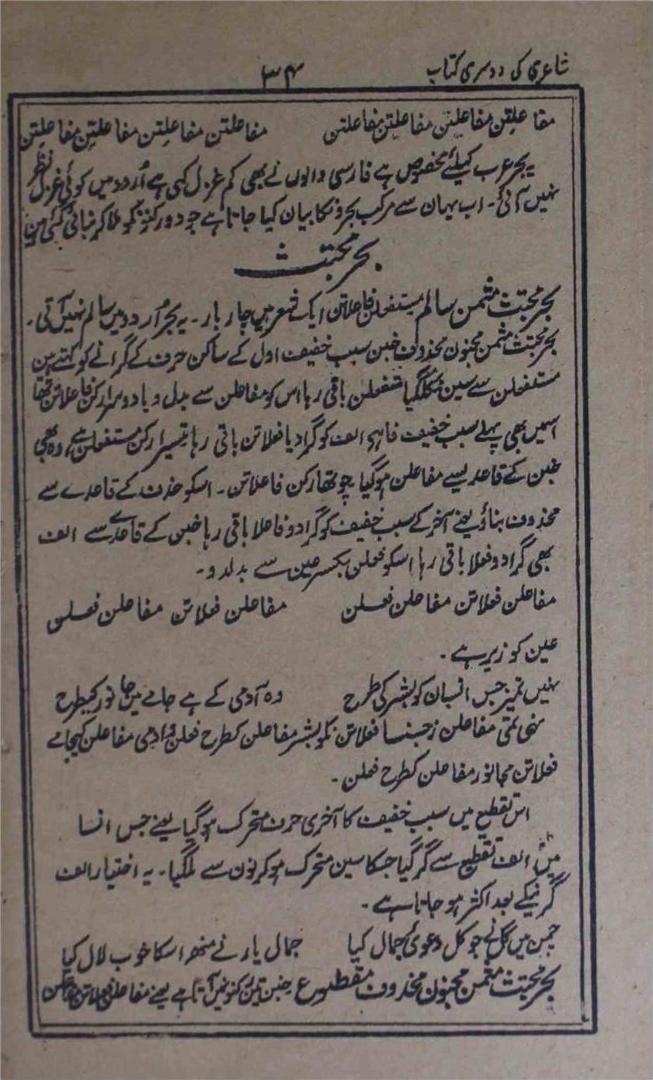 شاعری کی دوسری کتاب
۳۴
مفاعلتن مفاعلتن مفاعلتن مفاعلتن مفاعلتن مفاعلتن مفاعلتن مفاعلتن
یہ بحر عرب کیلئے مخصوص ہے فارسی والوں نے بھی کم غزل کہی ہے اُردو میں کوئی غزل نظر
نہیں آئی۔ اب یہاں سے مرکب بحرونکا بیان کیا جاتا ہے جو دو رکنونکو ملا کر بنائی گئی ہیں
بحر مجتث
بحر مجتث مثمن سالم مستفعلن فاعلاتن ایک شعر میں چار بار۔ یہ بحر اُردو میں سالم نہیں آتی۔
بحر مجتث مثمن مخبون محذوف خبن سبب خفیف اول کے ساکن حرف کے گرانے کو کہتے ہیں
مستفعلن سے سین نکل گیا متفعلن باقی رہا اس کو مفاعلن سے بدل دیا دوسرا رکن فاعلاتن تھا
اسمیں بھی پہلے سبب خفیف فا ہے الف کو گرا دیا فعلاتن باقی رہا تیسرا رکن مستفعلن ہے وہ بھی
خبن کے قاعدیسے مفاعلن ہو گیا چوتھا رکن فاعلاتن۔ اسکو حذف کے قاعدے سے
محذوف بناؤ یعنے آخر کے سبب خفیف کو گرا دو فاعلا باقی رہا خبن کے قاعدے سے الف
بھی گرا دو فعلا باقی رہا اسکو فعلن بکسر عین سے بدلدو۔
مفاعلن فعلاتن مفاعلن فعلن مفاعلن فعلاتن مفاعلن فعلن
عین کو زیر ہے۔
نہیں تمیز جس انسان کو بشر کی طرح وہ آدمی کے ہے جامے میں جانور کیطرح
نہی تمی مفاعلن زجنسا فعلاتن نکو بشر مفاعلن کطرح فعلن وادمی مفاعلن کہجامے
فعلاتن مجانور مفاعلن کطرح فعلن۔
اس تقطیع میں سبب خفیف کا آخری حرف متحرک ہو گیا یعنے جس انسا
میں الف تقطیع سے گر گیا جسکا سین متحرک ہو کر نون سے ملگیا۔ یہ اختیار الف
گرنیکے بعد اکثر ہو جاتا ہے۔
چمن میں گل نے جو کل دعویٔ جمال کیا جمال یار نے منھ اسکا خوب لال کیا
بحر مجتث مثمن مخبون محذوف مقطوع جنبین تین رکنونمیں آتا ہے یعنے مفاعلن فعلاتن مفاعلن